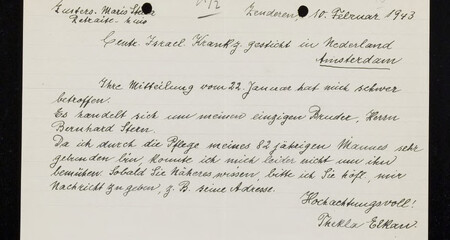 Zusters. Maris Stella
Retraite-huis
Zenderen, 10. Februar 1943
Centr. Israel. Krankz. gesticht in Nederland
Amsterdam
Ihre Mitteilung vom 22. Januar hat mich schwer
betroffen.
Es handelt sich um meinen einzigen Bruder, Herrn
Bernhard Stern.
Da ich durch die Pflege meines 82 jährigen Mannes sehr
gebunden bin, konnte ich mich leider nicht um ihn
bemühen. Sobald Sie Näheres wissen, bitte ich Sie höfl., mir
Nachricht zu geben, z. B. seine Adresse.
Hochachtungsvoll!
Thekla Elkan.